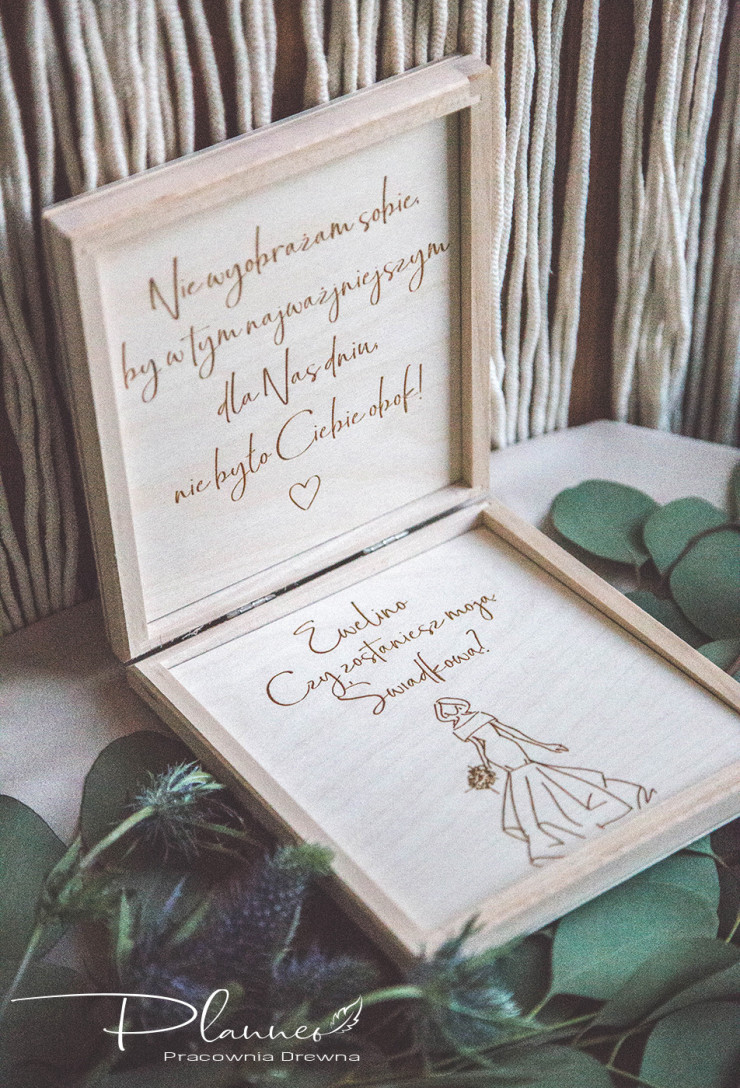 Nie wyobrażam sobie,
by w tym najważniejszym
dla Nas dniu,
nie było Ciebie obok!
Ewelino
Czy zostaniesz moją
Świadkową?
Planneo
Pracownia Drewna